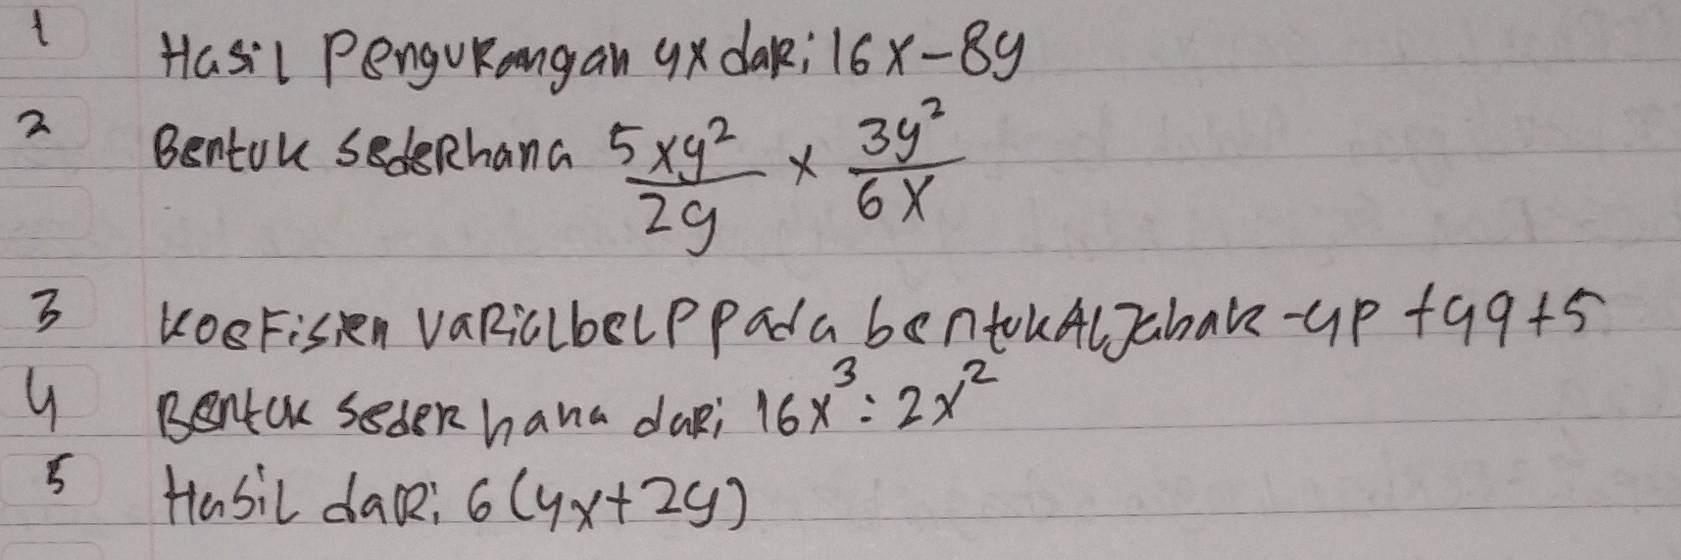 1 Hasil Pengurangan 4x dari 16x-8y
2 Bentuk sederhana 5xy²/2y × 3y²/6x
3 Koefisien variabel P pada bentuk Aljabar -4p+4q+5
4 Bentuk sederhana dari 16x³:2x²
5 Hasil dari 6(4x+2y)